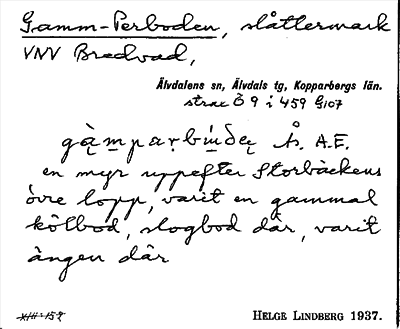 Gamm-Perboden, slåttermark
VNV Bredvad,
Älvdalens sn, Älvdals tg, Kopparbergs län.
strax Ö 9 i 459 G107
Å. A.E.
en myr uppefter Storbäckens
övre lopp, varit en gammal
kölbod, slogbod där, varit
ängen där
HELGE LINDBERG 1937.